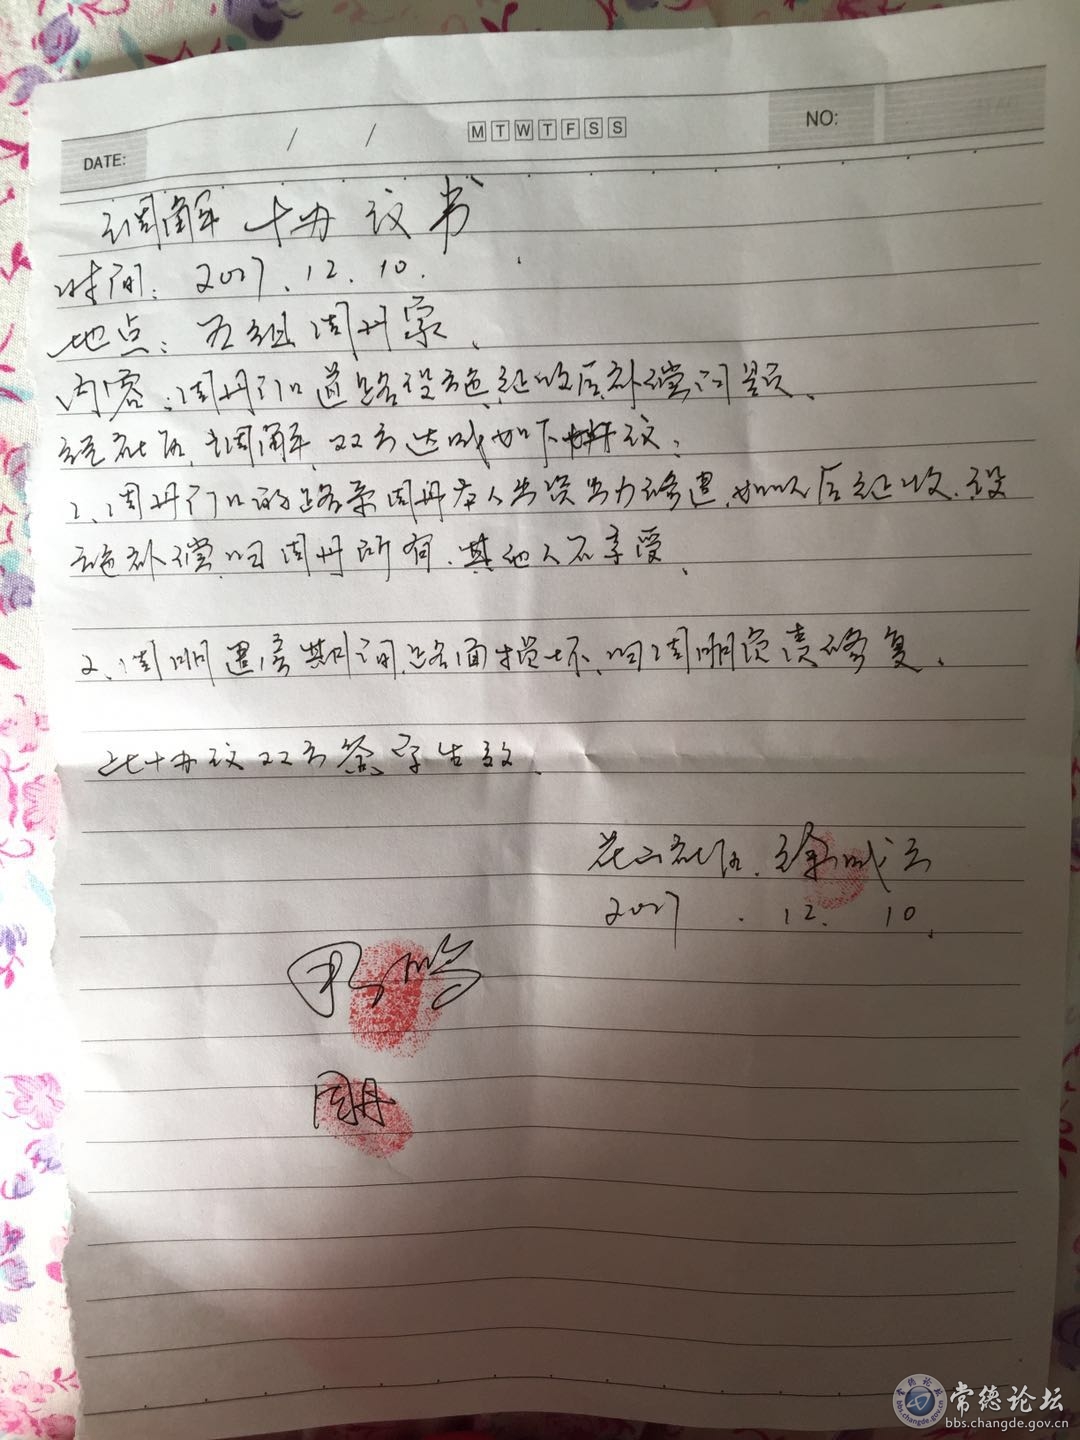 DATE: / / M T W T F S S NO:
调解协议书
时间:2017.12.10.
地点:五组周丹家.
内容:周丹门口道路设施征收后补偿问题.
经社区调解,双方达成如下协议:
1、周丹门口的路系周丹本人出资出力修建,如以后征收,设
施补偿归周丹所有.其他人不享受.
2、周 建房期间,路面损坏,归周 负责修复.
此协议双方签字生效.
花山社区.徐成云
2017.12.10.
周丹
常德论坛
bbs.changde.gov.cn